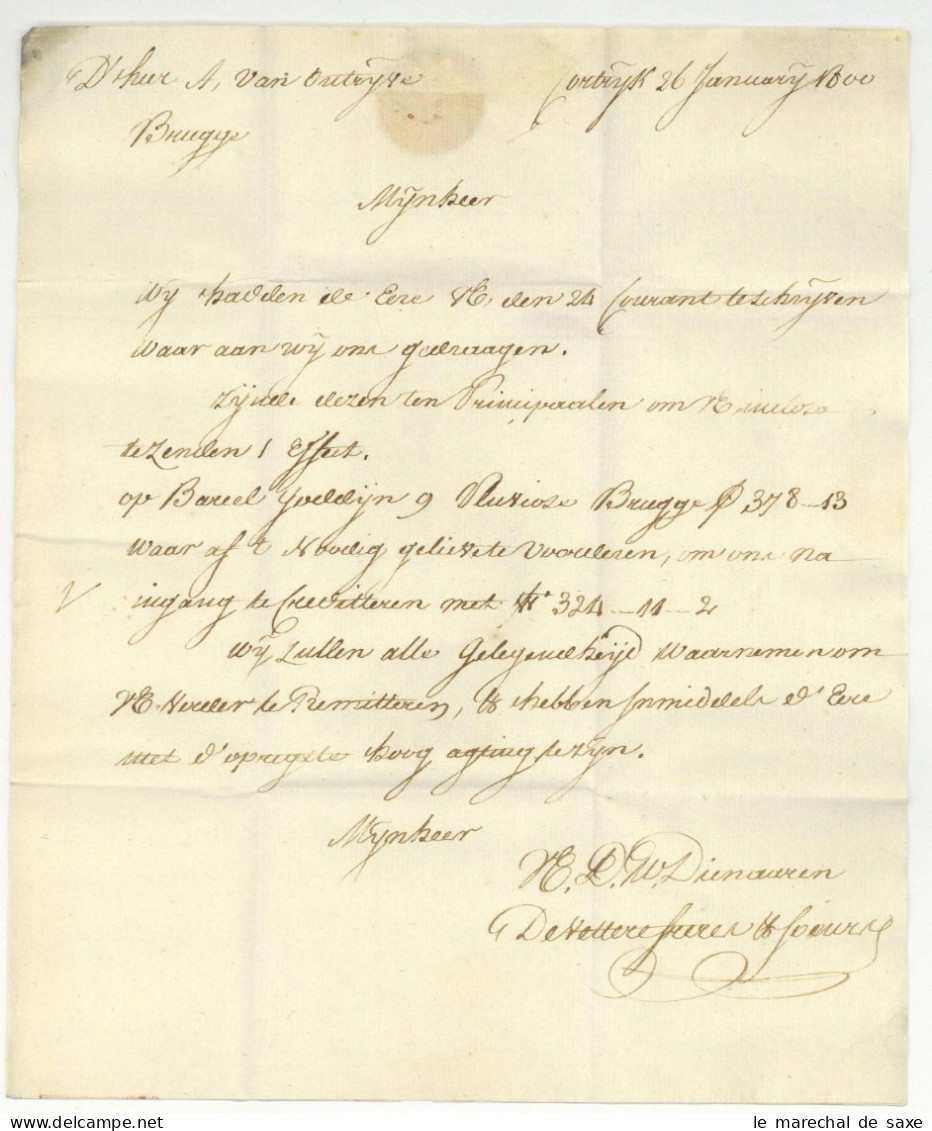 D'heer A, Van Outryve Cortryk 26 January 1800
Brugge
Mynheer
Wy hadden de Eere UE, den 24 Courant te schryven
waar aan wy ons gedraagen.
Zynde dezen ten Principaalen om UE
te Zenden 1 Effect.
op Bareel Goddyn 9 Pluviose Brugge 378-13
waar af t Noodig gelieve te Voorderen, om ons na
ingang te Crediteren met 324-11-2
Wy Zullen alle Gelegendheyd Waarnemen om
UE. Verder te Remitteren, & hebben Inmiddels d'Eere
met d'opregste hoog agting te Zyn.
Mynheer
UE. D. W. Dienaaren
De Vettere freres & soeurs
le marechal de saxe